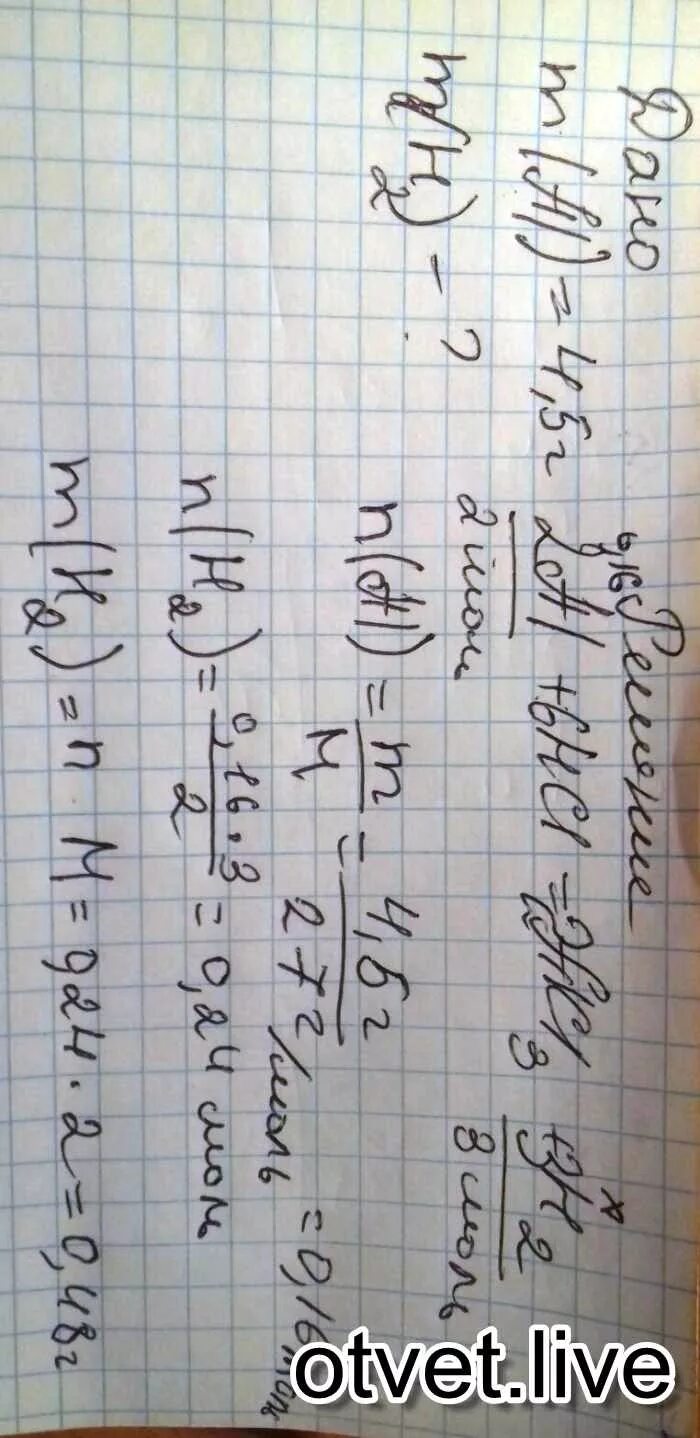 Дано Решение
m(Al) = 4,5г
m(H2) - ?
0,16 x
2Al + 6HCl = 2AlCl3 + 3H2
2 моль 3 моль
n(Al) = m/M = 4,5г / 27г/моль = 0,16 моль
n(H2) = 0,16·3 / 2 = 0,24 моль
m(H2) = n M = 0,24 · 2 = 0,48г
otvet.live